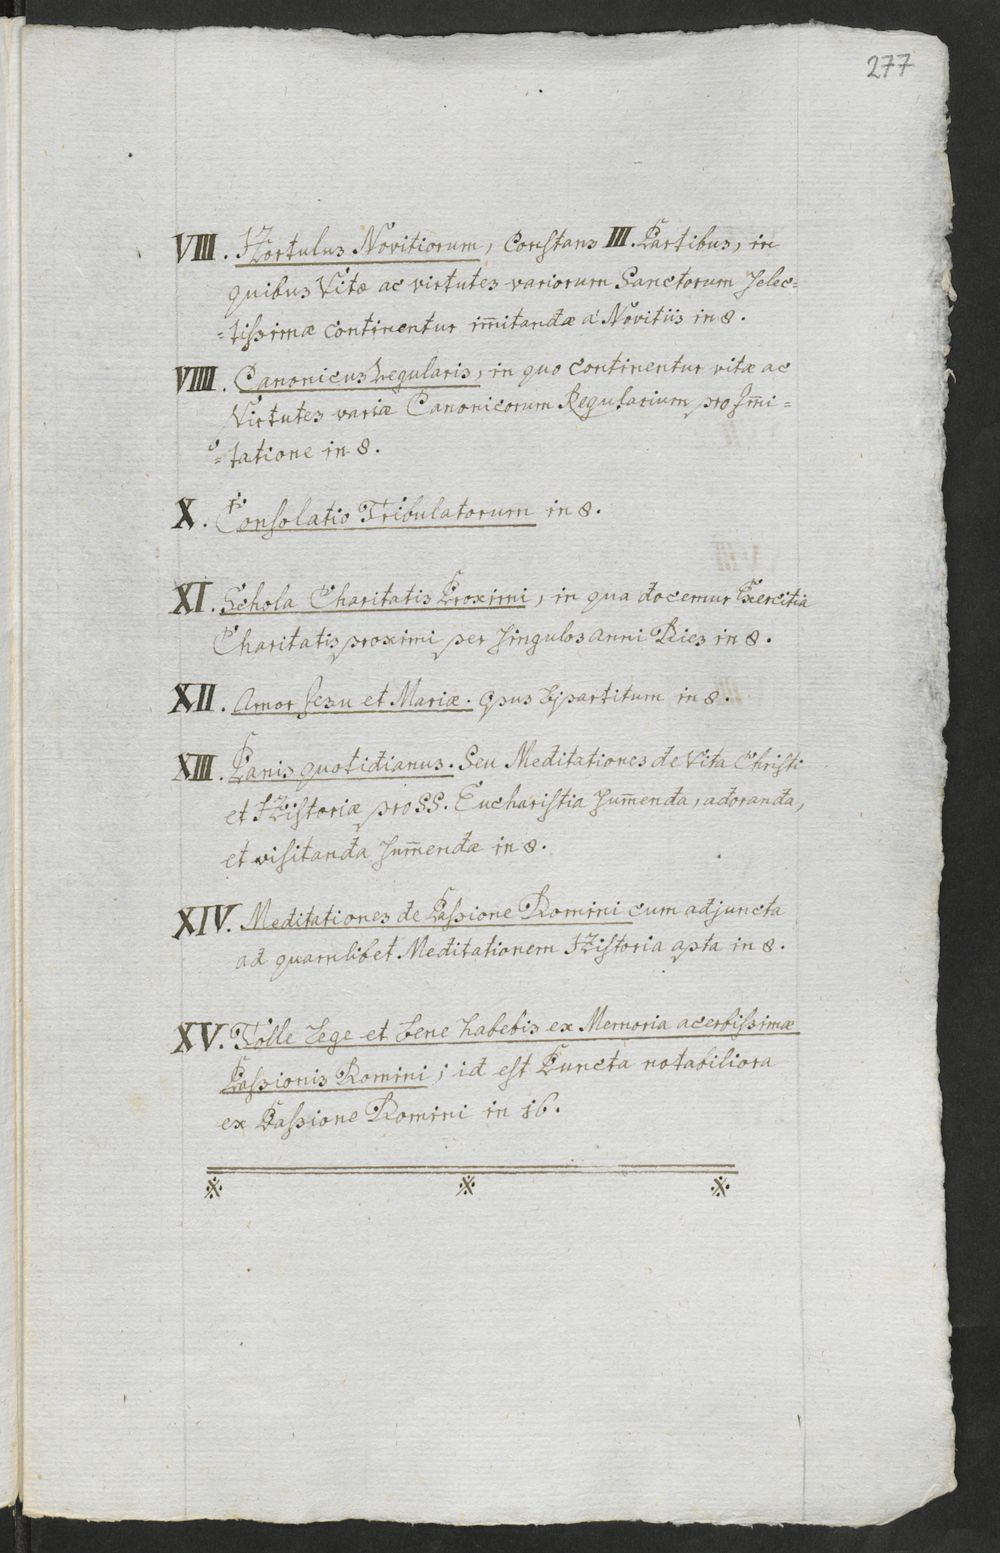 277
VIII. Hortulus Novitiorum, Constans III. Partibus, in
quibus Vitæ ac virtutes variorum Sanctorum Selec=
=tissimæ continentur im̃itandæ a' Novitiis in 8.
VIIII. Canonicus Regularis, in quo continentur vitæ ac
Virtutes variæ Canonicorum Regularium pro Im̃i=
=tatione in 8.
X. Consolatio Tribulatorum in 8.
XI. Schola Charitatis Proximi, in qua docemur Exercitia
Charitatis proximi per Singulos anni Dies in 8.
XII. Amor Jesu et Mariæ. Opus bipartitum in 8.
XIII. Panis quotidianus. Seu Meditationes de Vita Christi
et Historiæ pro SS. Eucharistia Sum̃enda, adoranda,
et visitanda Sum̃endæ in 8.
XIV. Meditationes de Passione Domini cum adjuncta
ad quamlibet Meditationem Historia apta in 8.
XV. Tolle Lege et bene habebis ex Memoria acerbissimæ
Passionis Domini; id est Puncta notabiliora
ex Passione Domini in 16.